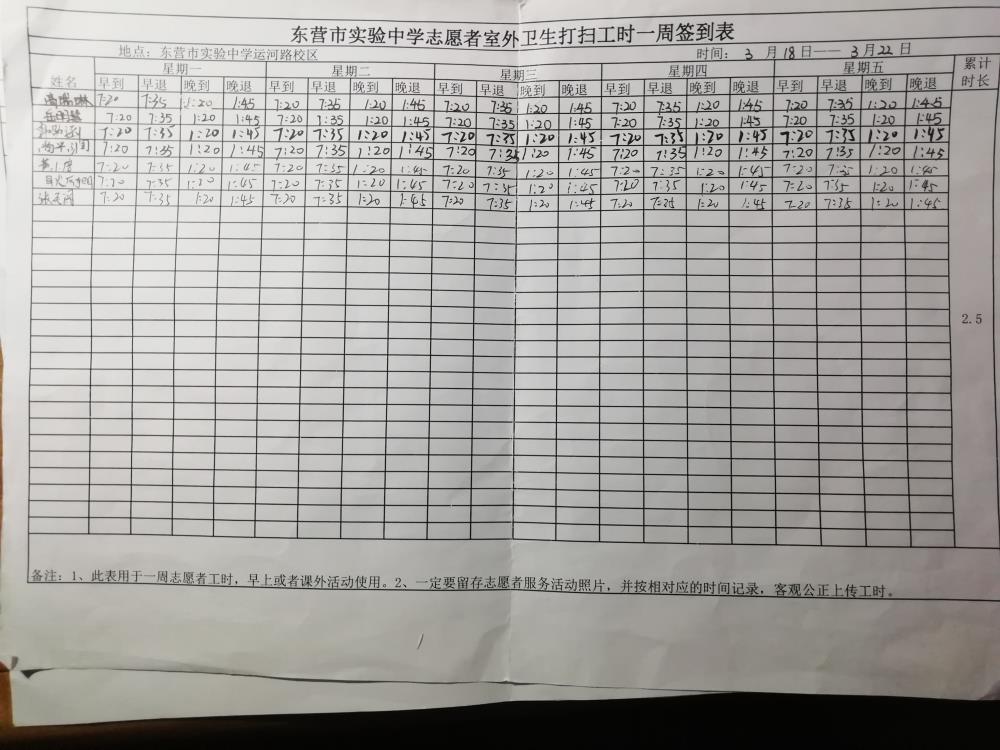 东营市实验中学志愿者室外卫生打扫工时一周签到表
地点：东营市实验中学运河路校区 时间： 3 月 18 日—— 3 月 22 日
姓名 星期一 星期二 星期三 星期四 星期五 累计时长
早到 早退 晚到 晚退 早到 早退 晚到 晚退 早到 早退 晚到 晚退 早到 早退 晚到 晚退 早到 早退 晚到 晚退
7:20 7:35 1:20 1:45 7:20 7:35 1:20 1:45 7:20 7:35 1:20 1:45 7:20 7:35 1:20 1:45 7:20 7:35 1:20 1:45
7:20 7:35 1:20 1:45 7:20 7:35 1:20 1:45 7:20 7:35 1:20 1:45 7:20 7:35 1:20 1:45 7:20 7:35 1:20 1:45
7:20 7:35 1:20 1:45 7:20 7:35 1:20 1:45 7:20 7:35 1:20 1:45 7:20 7:35 1:20 1:45 7:20 7:35 1:20 1:45
7:20 7:35 1:20 1:45 7:20 7:35 1:20 1:45 7:20 7:35 1:20 1:45 7:20 7:35 1:20 1:45 7:20 7:35 1:20 1:45
7:20 7:35 1:20 1:45 7:20 7:35 1:20 1:45 7:20 7:35 1:20 1:45 7:20 7:35 1:20 1:45 7:20 7:35 1:20 1:45
7:20 7:35 1:20 1:45 7:20 7:35 1:20 1:45 7:20 7:35 1:20 1:45 7:20 7:35 1:20 1:45 7:20 7:35 1:20 1:45
7:20 7:35 1:20 1:45 7:20 7:35 1:20 1:45 7:20 7:35 1:20 1:45 7:20 7:35 1:20 1:45 7:20 7:35 1:20 1:45
2.5
备注：1、此表用于一周志愿者工时，早上或者课外活动使用。2、一定要留存志愿者服务活动照片，并按相对应的时间记录，客观公正上传工时。